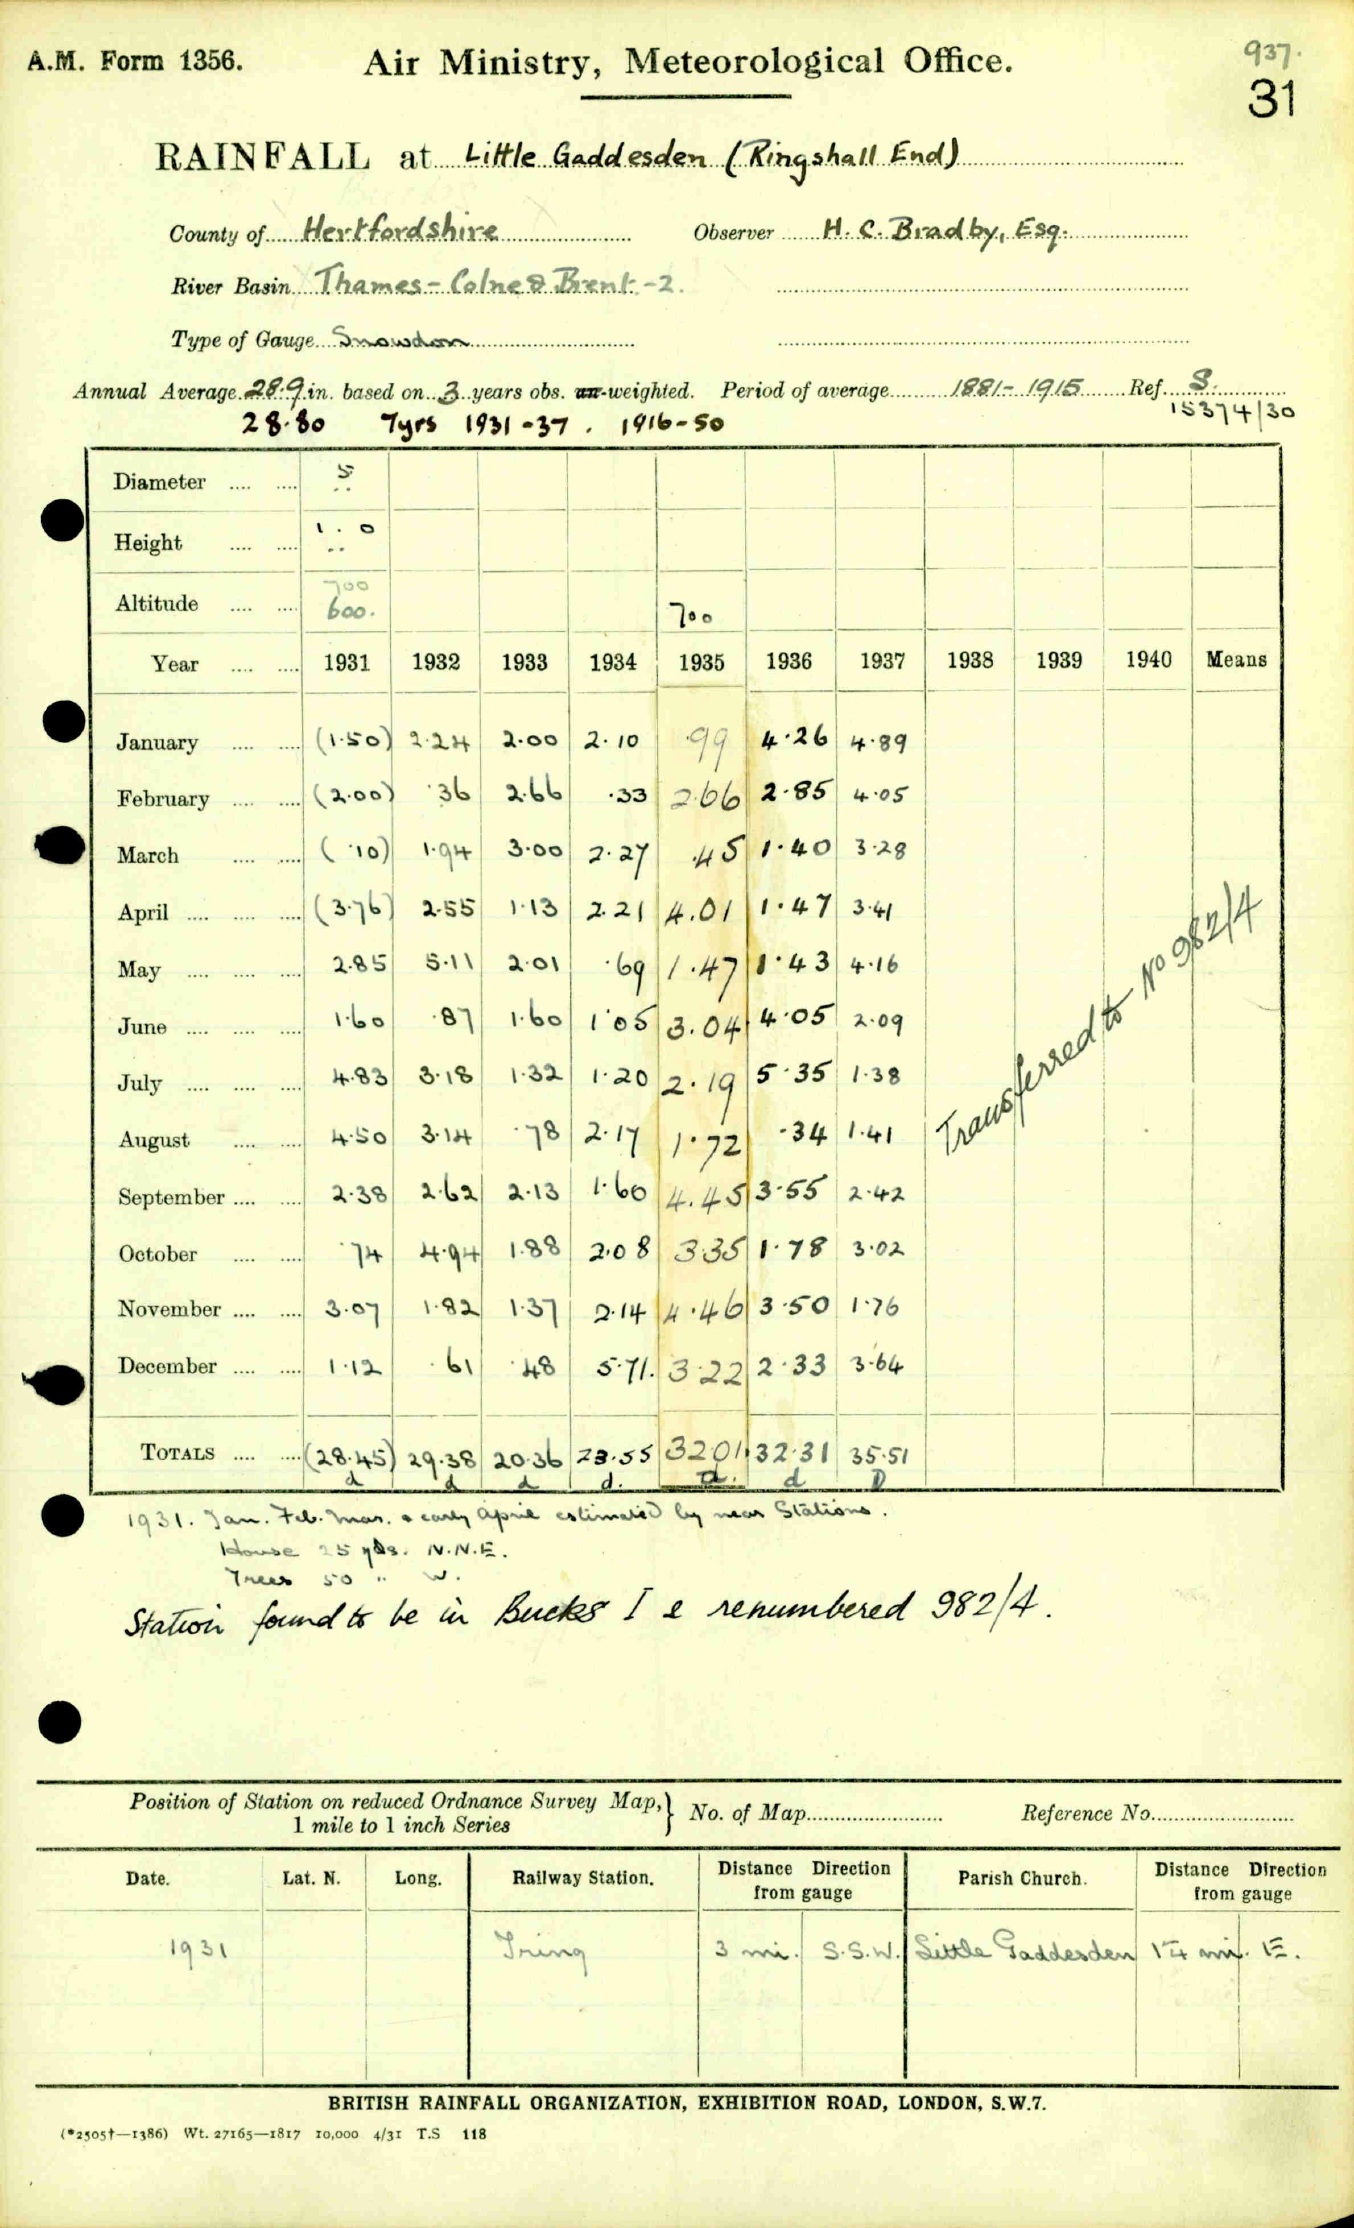 A.M. Form 1356. Air Ministry, Meteorological Office. 937.
31
RAINFALL at Little Gaddesden (Ringshall End)
County of Hertfordshire Observer H. C. Bradby, Esq.
River Basin Thames - Colne & Brent - 2.
Type of Gauge Snowdon
Annual Average 28.9 in. based on 3 years obs. un-weighted. Period of average 1881-1915 Ref. S.
28.80 7yrs 1931-37. 1916-50 15374/30
Diameter 5
Height 1.0
Altitude 700 600. 700
Year 1931 1932 1933 1934 1935 1936 1937 1938 1939 1940 Means
January (1.50) 2.24 2.00 2.10 .99 4.26 4.89
February (2.00) .36 2.66 .33 2.66 2.85 4.05
March (.10) 1.94 3.00 2.27 .45 1.40 3.28
April (3.76) 2.55 1.13 2.21 4.01 1.47 3.41
May 2.85 5.11 2.01 .69 1.47 1.43 4.16
June 1.60 .87 1.60 1.05 3.04 4.05 2.09
July 4.83 3.18 1.32 1.20 2.19 5.35 1.38
August 4.50 3.14 .78 2.17 1.72 .34 1.41
September 2.38 2.62 2.13 1.60 4.45 3.55 2.42
October .74 4.94 1.88 2.08 3.35 1.78 3.02
November 3.07 1.82 1.37 2.14 4.46 3.50 1.76
December 1.12 .61 .48 5.71. 3.22 2.33 3.64
Transferred to No 982/4
TOTALS (28.45) 29.38 20.36 23.55 32.01 32.31 35.51
d d d d. d. d D
1931. Jan. Feb. Mar. & early April estimated by near Stations.
House 25 yds. N.N.E.
Trees 50 " W.
Station found to be in Bucks I & renumbered 982/4.
Position of Station on reduced Ordnance Survey Map, 1 mile to 1 inch Series } No. of Map Reference No.
Date. Lat. N. Long. Railway Station. Distance Direction from gauge Parish Church. Distance Direction from gauge
1931 Tring 3 mi. S.S.W. Little Gaddesden 1¼ mi. E.
BRITISH RAINFALL ORGANIZATION, EXHIBITION ROAD, LONDON, S.W.7.
(*2505†—1386) Wt. 27165—1817 10,000 4/31 T.S 118